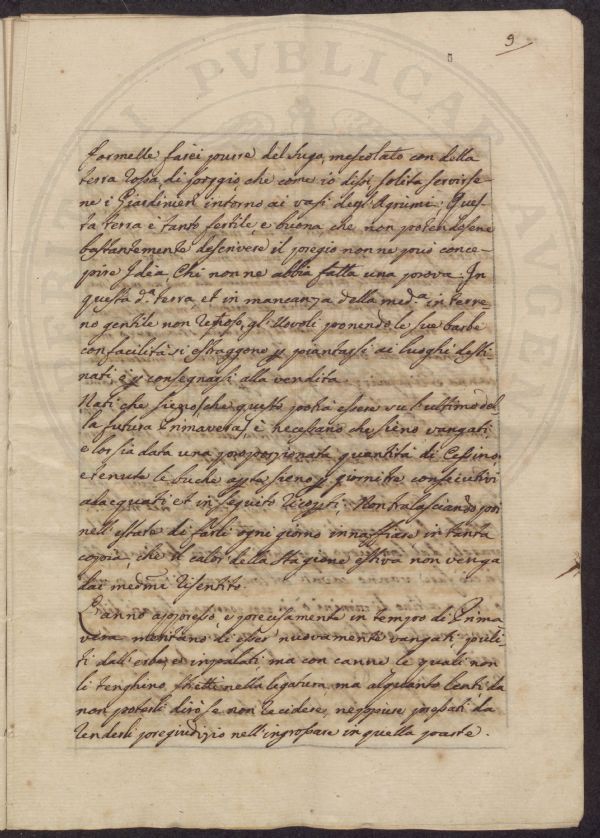 9
formelle farei porre del sugo, mescolato con della
terra rossa di poggio che come io dissi solita servirse-
ne i Giardinieri intorno ai vasi degl'Agrumi. Ques-
ta terra è tanto fertile, e buona che non potendosene
bastantemente descrivere il pregio non ne può conce-
pire Idea, Chi non ne abbia fatta una prova. In
questa d.ª terra, et in mancanza della med.ª in terre
no gentile non tufoso, gl'Uovoli ponendo le sue barbe
con facilità si estraggono p piantarsi ai luoghi desti
nati e p consegnarsi alla vendita.
Nati che sieno, che questo potrà essere su l'ultimo del
la futura Primavera, è necessario che sieno vangati,
e lor sia data una proporzionata quantità di Cessino,
e tenute le buche aperte sieno p giornate consecutivi
adacquati et in seguito ricoperti. Non tralasciando poi
nell'estate di farli ogni giorno innaffiare in tanta
copia, che il calor della Stagione estiva non venga
dai medmi risentito.
L'anno appresso, e precisamente in tempo di Prima
vera meritano di esser nuovamente vangati puli-
ti dall'erbe, et impalati, ma con canne le quali non
li tenghino stretti nella legatura, ma alquanto lenti da
non poterli dirò se non recidere, neppure pressati da
renderli pregiudizio nell'ingrossare in quella parte.